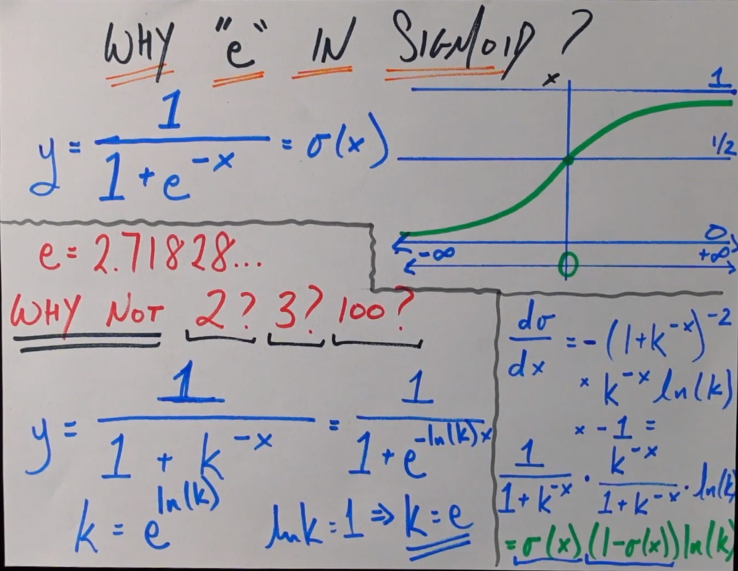 WHY "e" IN SIGMOID?
y = 1 / (1 + e^-x) = σ(x)
x
1
1/2
0
-∞ +∞
0
e = 2.71828...
WHY NOT 2? 3? 100?
y = 1 / (1 + k^-x) = 1 / (1 + e^-ln(k)x)
k = e^ln(k) lnk = 1 ⇒ k = e
dσ/dx = -(1+k^-x)^-2
× k^-x ln(k)
× -1 =
1 / (1+k^-x) · k^-x / (1+k^-x) · ln(k)
= σ(x) (1-σ(x)) ln(k)